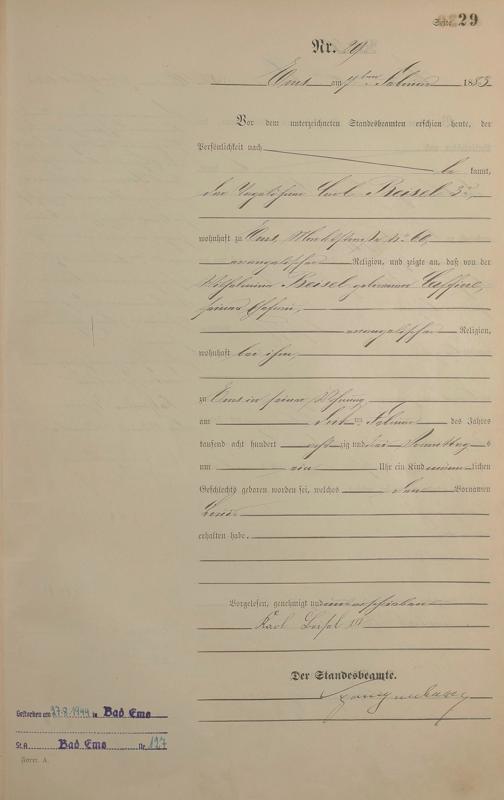 Seite 29
Nr. 29.
Ems am 7ten Februar 1883
Vor dem unterzeichneten Standesbeamten erschien heute, der
Persönlichkeit nach
be kannt,
der Tagelöhner Carl Beisel 3r,
wohnhaft zu Ems, Marktstraße No 60,
evangelischer Religion, und zeigte an, daß von der
Wilhelmine Beisel geborenen
seiner Ehefrau,
evangelischer Religion,
wohnhaft bei ihm,
zu Ems in seiner Wohnung
am Februar des Jahres
tausend acht hundert achtzig und drei Vormittags
um ein Uhr ein Kind männlichen
Geschlechts geboren worden sei, welches den Vornamen
Louis
erhalten habe.
Vorgelesen, genehmigt und unterschrieben
Karl Beisel III
Der Standesbeamte.
Gestorben am 27.8.1944 in Bad Ems
St.A. Bad Ems Nr. 127
Form. A.